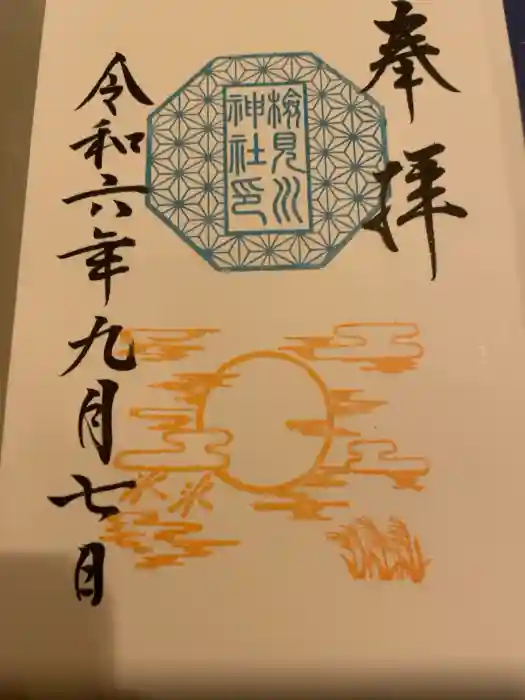 奉拝
検見川
神社印
令和六年九月七日